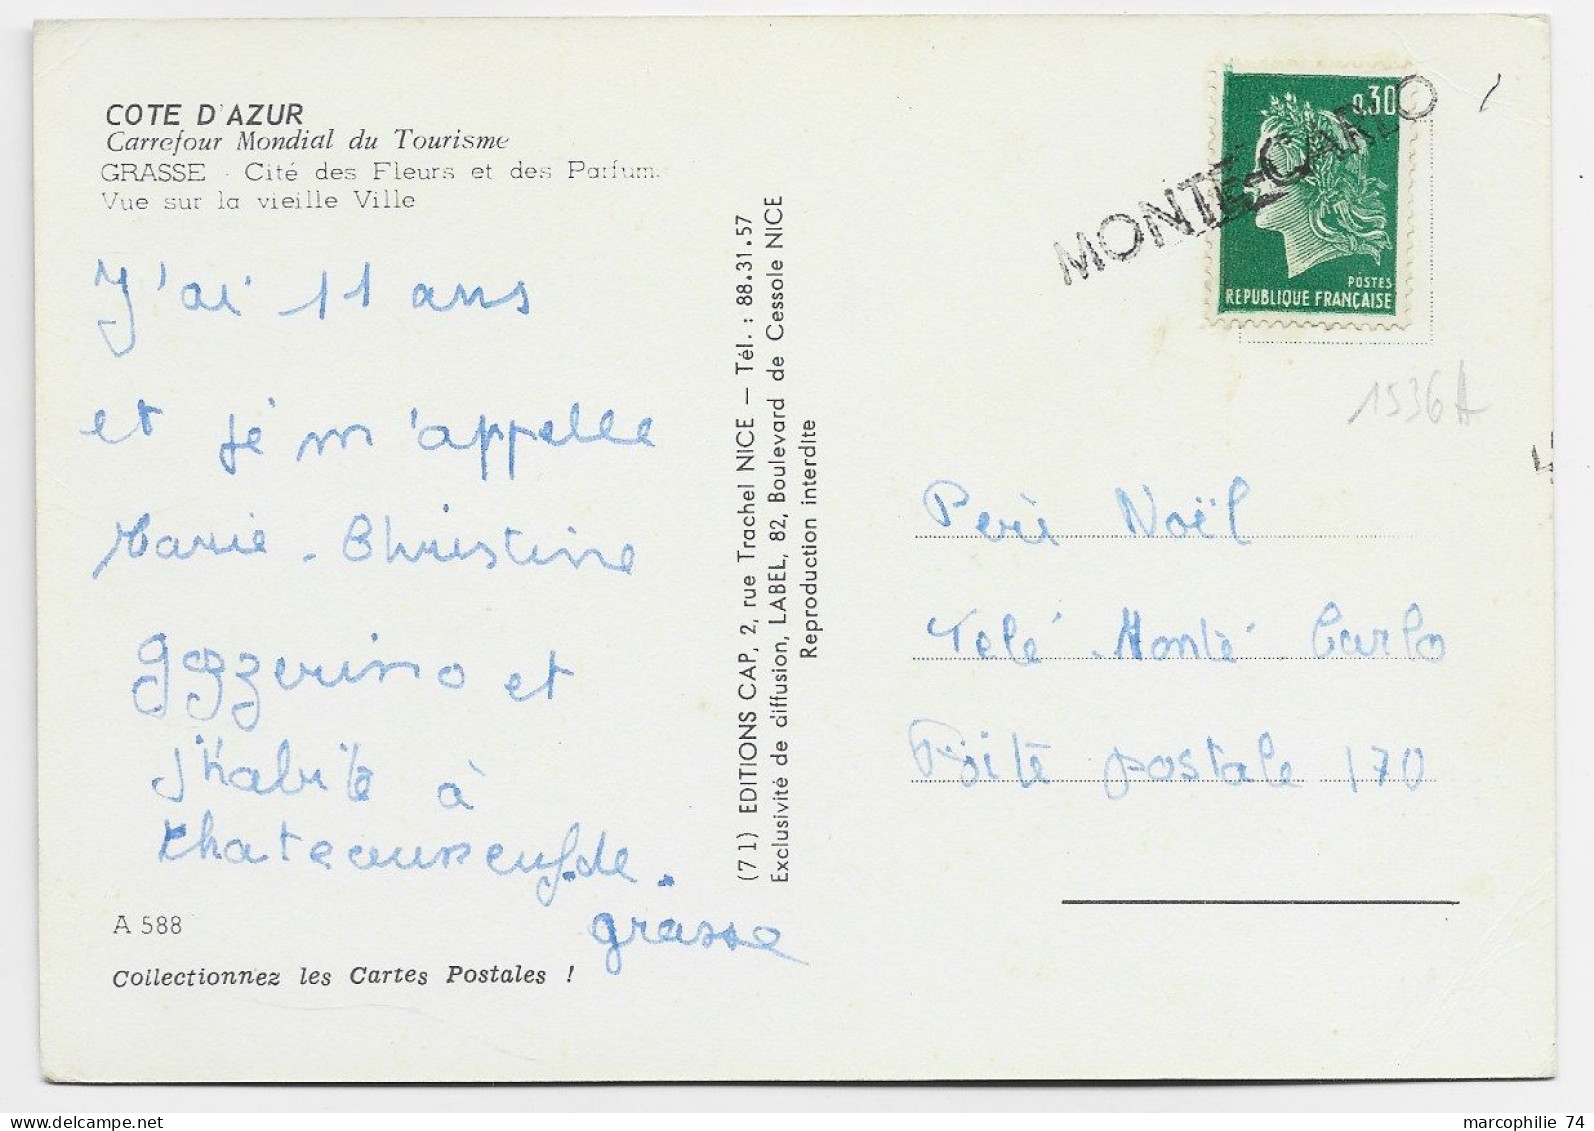 COTE D'AZUR
Carrefour Mondial du Tourisme
GRASSE - Cité des Fleurs et des Parfums
Vue sur la vieille Ville
J'ai 11 ans
et je m'appelle
Marie - Christine
gozzerino et
j'habite à
chateauneuf.de.
grasse
A 588
Collectionnez les Cartes Postales !
(71) EDITIONS CAP, 2, rue Trachel NICE — Tél. : 88.31.57
Exclusivité de diffusion, LABEL, 82, Boulevard de Cessole NICE
Reproduction interdite
MONTE-CARLO
0.30
POSTES
REPUBLIQUE FRANÇAISE
1536A
Perè Noël
Telé Monté Carlo
Boite postale 170
marcophilie 74